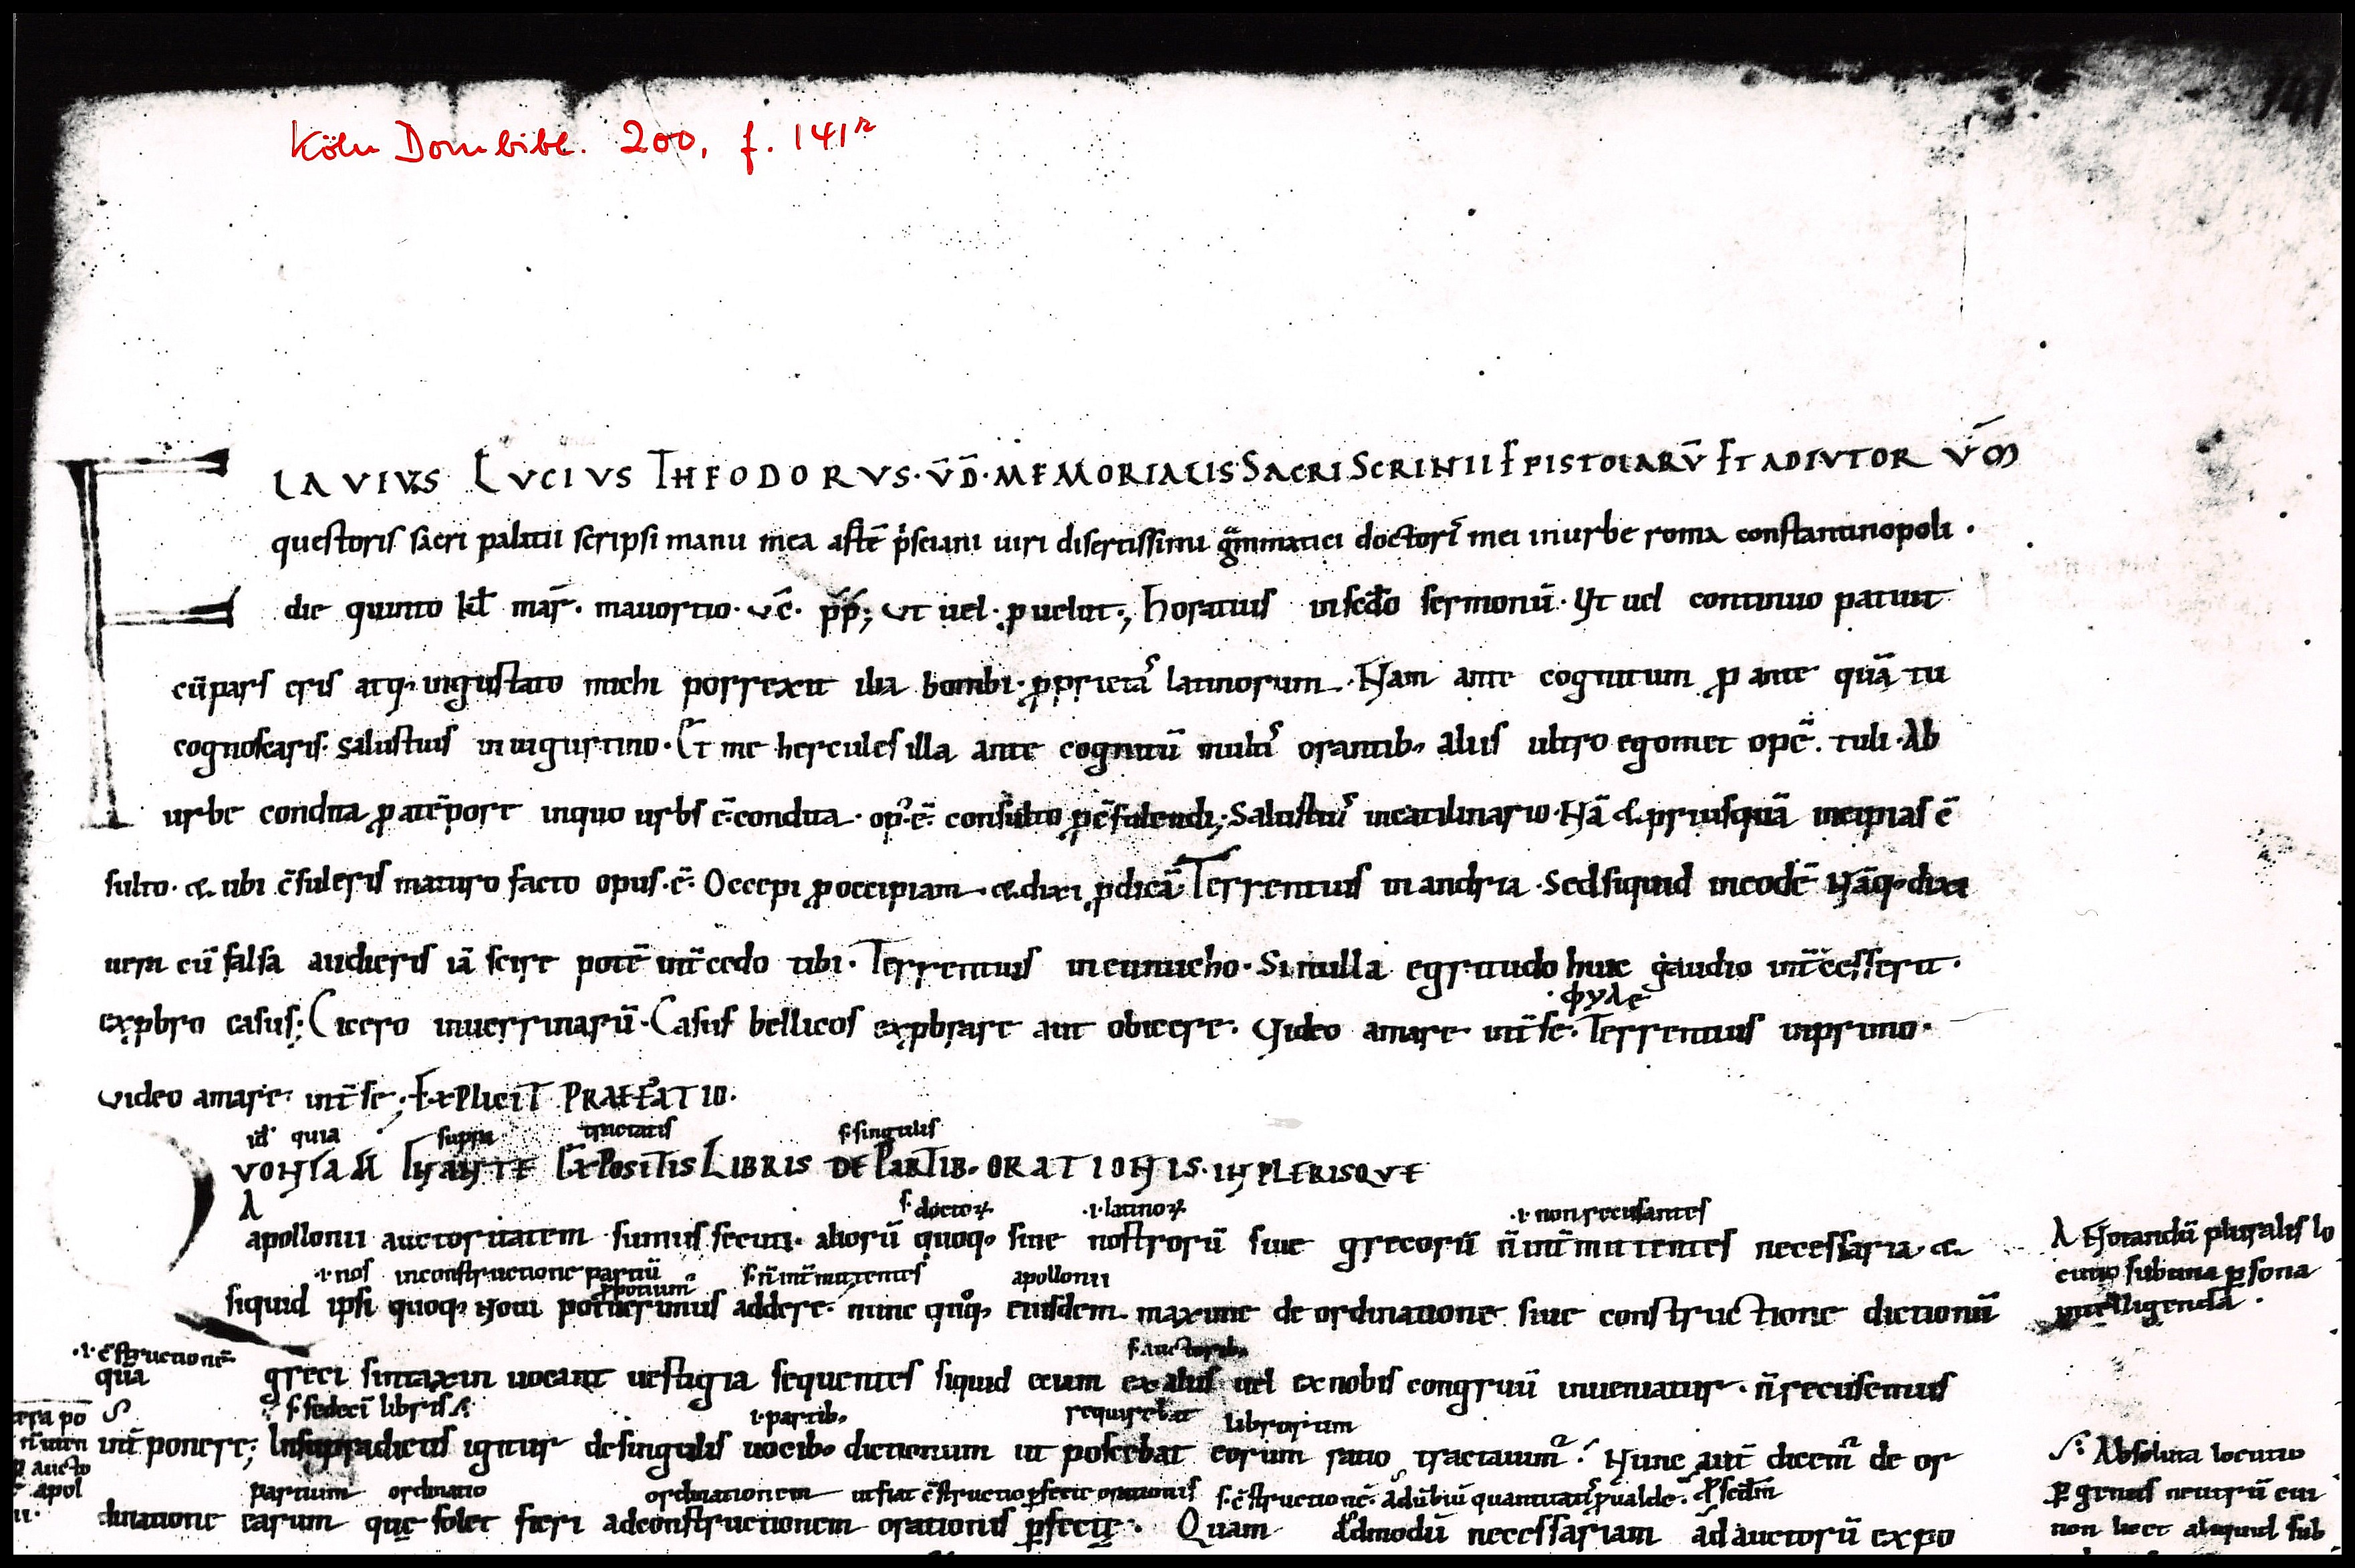 Köln Dombibl. 200, f. 141r
FLAVIUS LUCIUS THEODORUS · V̄D̄ · MEMORIALIS SACRI SCRINII EPISTOLARŪ ET ADIUTOR V̄M
questoris sacri palatii scripsi manu mea artē p̄sciani uiri disertissimi gmmatici doctoris mei in urbe roma constantinopoli ·
die quinto kł mar̄ · mauortio · v̄c · p̄p̄; ut uel · p uelut ·, horatius in scđo sermonū · Vt uel continuo patuit
cū pars eris atq; ingustato michi porrexit ilia bombi · pprietas latinorum · Nam ante cognitum p ante quā tu
cognoscaris · salustius in iugurtino · Et me hercules illa ante cognitū multis orantib; aliis ultro egomet opē · tuli · Ab
urbe condita p a tēpore in quo urbs ē condita · op; ē consulto p cēsulendi; Salustius in catilinario · Nā & priusquā incipias cē
sulto · & ubi cēsuleris maturo facto opus · ē · Occepi p occipiam · & dixi p dicā · Terrentius in andria · Sed siquid in eodē Nāq; dixi
uera cū falsa audieris iā scire potē int̄cedo tibi · Terrentius in eunucho · Si nulla egritudo huic gaudio int̄cesserit ·
· φυλε
expbro casus; Cicero in uerrinarū · Casus bellicos expbrare aut obicere · Video amare int̄ se · Terrentius in primo ·
video amare int̄ se; EXPLICIT PRAEFATIO ·
id quia supra tractatis s· singulis
QVONIAM IN ANTE EXPOSITIS LIBRIS DE PARTIB; ORATIONIS · IN PLERISQVE
λ s· doctoꝝ ·i· latinoꝝ ·i· non recusantes
apollonii auctoritatem sumus secuti · aliorū quoq; siue nostrorū siue grecorū n̄ int̄mittentes necessaria · &
·i· nos in constructione partiū s· n̄ int̄mittentes apollonii
siquid ipsi quoq; noui potuerimus addere · nunc quoq; eiusdem maxime de ordinatione siue constructione dictionū
·i· cōstructionē s· auctorib;
quā greci sintaxin uocant uestigia sequentes siquid etiam ex aliis uel ex nobis congruū inueniatur · n̄ recusemus
s· sedecī libris ·i· partib; requirebat librorum
int̄ponere; In supradictis igitur de singulis uocib; dictionum ut poscebat eorum ratio tractauim; Nunc aut̄ dicem; de or
partium ordinatio ordinationem ut fiat cōstructio pfecte orationis
dinatione earum que solet fieri ad constructionem orationis pfecte · Quam admodū necessariam ad auctorū expo
λ Notandū pluralis lo
cutio sub una psona
intelligenda ·
Absoluta locutio
p genus neutrū cui
non licet aliquid sub